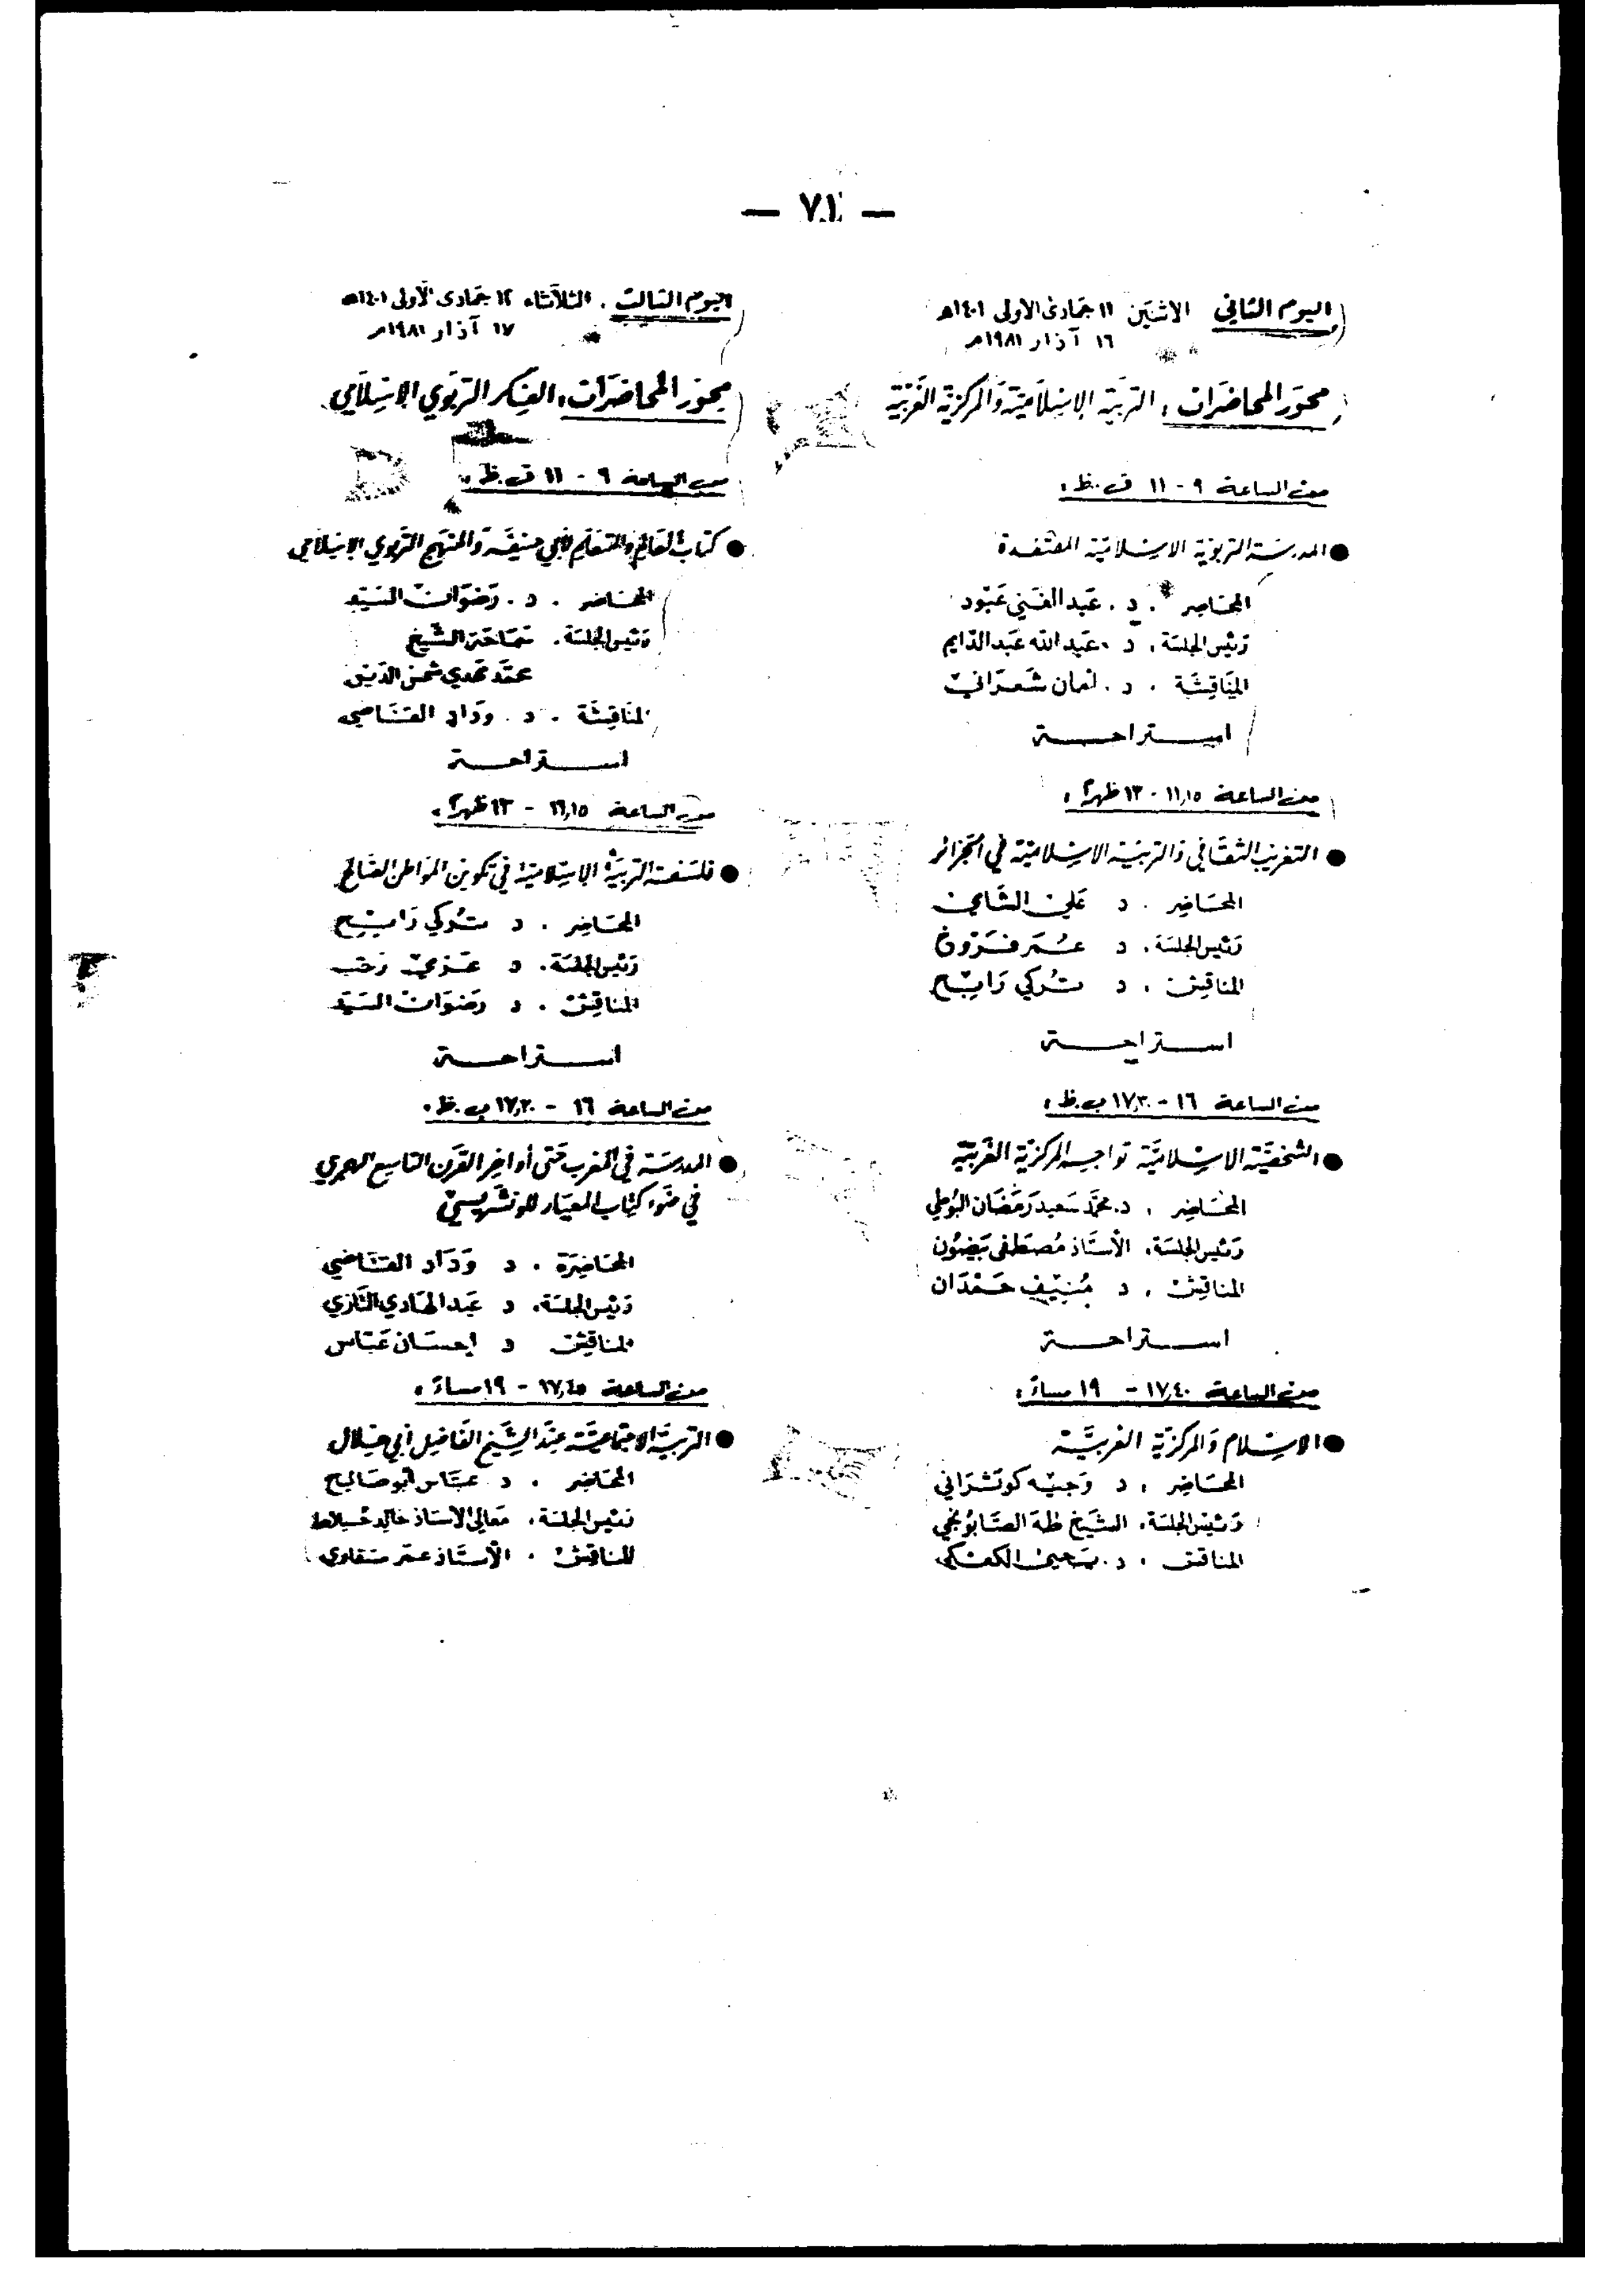 — ٧١ —
اليوم الثاني الاثنين ١١ جمادى الاولى ١٤٠١هـ
١٦ آذار ١٩٨١م
محور المحاضرات : التربية الإسلامية والمركزية الغربية
من الساعة ٩ - ١١ ق.ظ :
● المدرسة التربوية الاسلامية المفتقدة
المحاضر . د . عبد الغني عبود
رئيس الجلسة . د . عبد الله عبد الدايم
المناقشة . د . لمان شعراني
استراحة
من الساعة ١١,١٥ - ١٣ ظهراً :
● التغريب الثقافي والتربية الاسلامية في الجزائر
المحاضر . د علي الشامي
رئيس الجلسة . د عمر فروخ
المناقش . د تركي رابح
استراحة
من الساعة ١٦ - ١٧,٣٠ ب.ظ :
● الشخصية الاسلامية تواجه المركزية الغربية
المحاضر . د. محمد سعيد رمضان البوطي
رئيس الجلسة . الأستاذ مصطفى بيضون
المناقش . د منيف حمدان
استراحة
من الساعة ١٧,٤٠ - ١٩ مساءً :
● الاسلام والمركزية الغربية
المحاضر . د وجيه كوثراني
رئيس الجلسة . الشيخ طه الصابونجي
المناقش . د. يحيى الكعكي
اليوم الثالث . الثلاثاء ١٢ جمادى الأولى ١٤٠١هـ
١٧ آذار ١٩٨١م
محور المحاضرات : الفكر التربوي الإسلامي
من الساعة ٩ - ١١ ق.ظ :
● كتاب العالم والمتعلم لأبي حنيفة والمنهج التربوي الإسلامي
المحاضر . د . رضوان السيد
رئيس الجلسة . سماحة الشيخ
محمد مهدي شمس الدين
المناقشة . د . وداد القاضي
استراحة
من الساعة ١١,١٥ - ١٣ ظهراً :
● فلسفة التربية الإسلامية في تكوين المواطن الصالح
المحاضر . د تركي رابح
رئيس الجلسة . د عزمي رجب
المناقش . د رضوان السيد
استراحة
من الساعة ١٦ - ١٧,٣٠ ب.ظ :
● المدرسة في المغرب حتى أواخر القرن التاسع الهجري
في ضوء كتاب المعيار للونشريسي
المحاضرة . د وداد القاضي
رئيس الجلسة . د عبد الهادي التازي
المناقش د إحسان عباس
من الساعة ١٧,٤٥ - ١٩ مساءً :
● التربية الاجتماعية عند الشيخ الفاضل أبي هلال
المحاضر . د . عباس أبو صالح
رئيس الجلسة . معالي الأستاذ خالد جنبلاط
المناقش . الأستاذ عمر مسقاوي